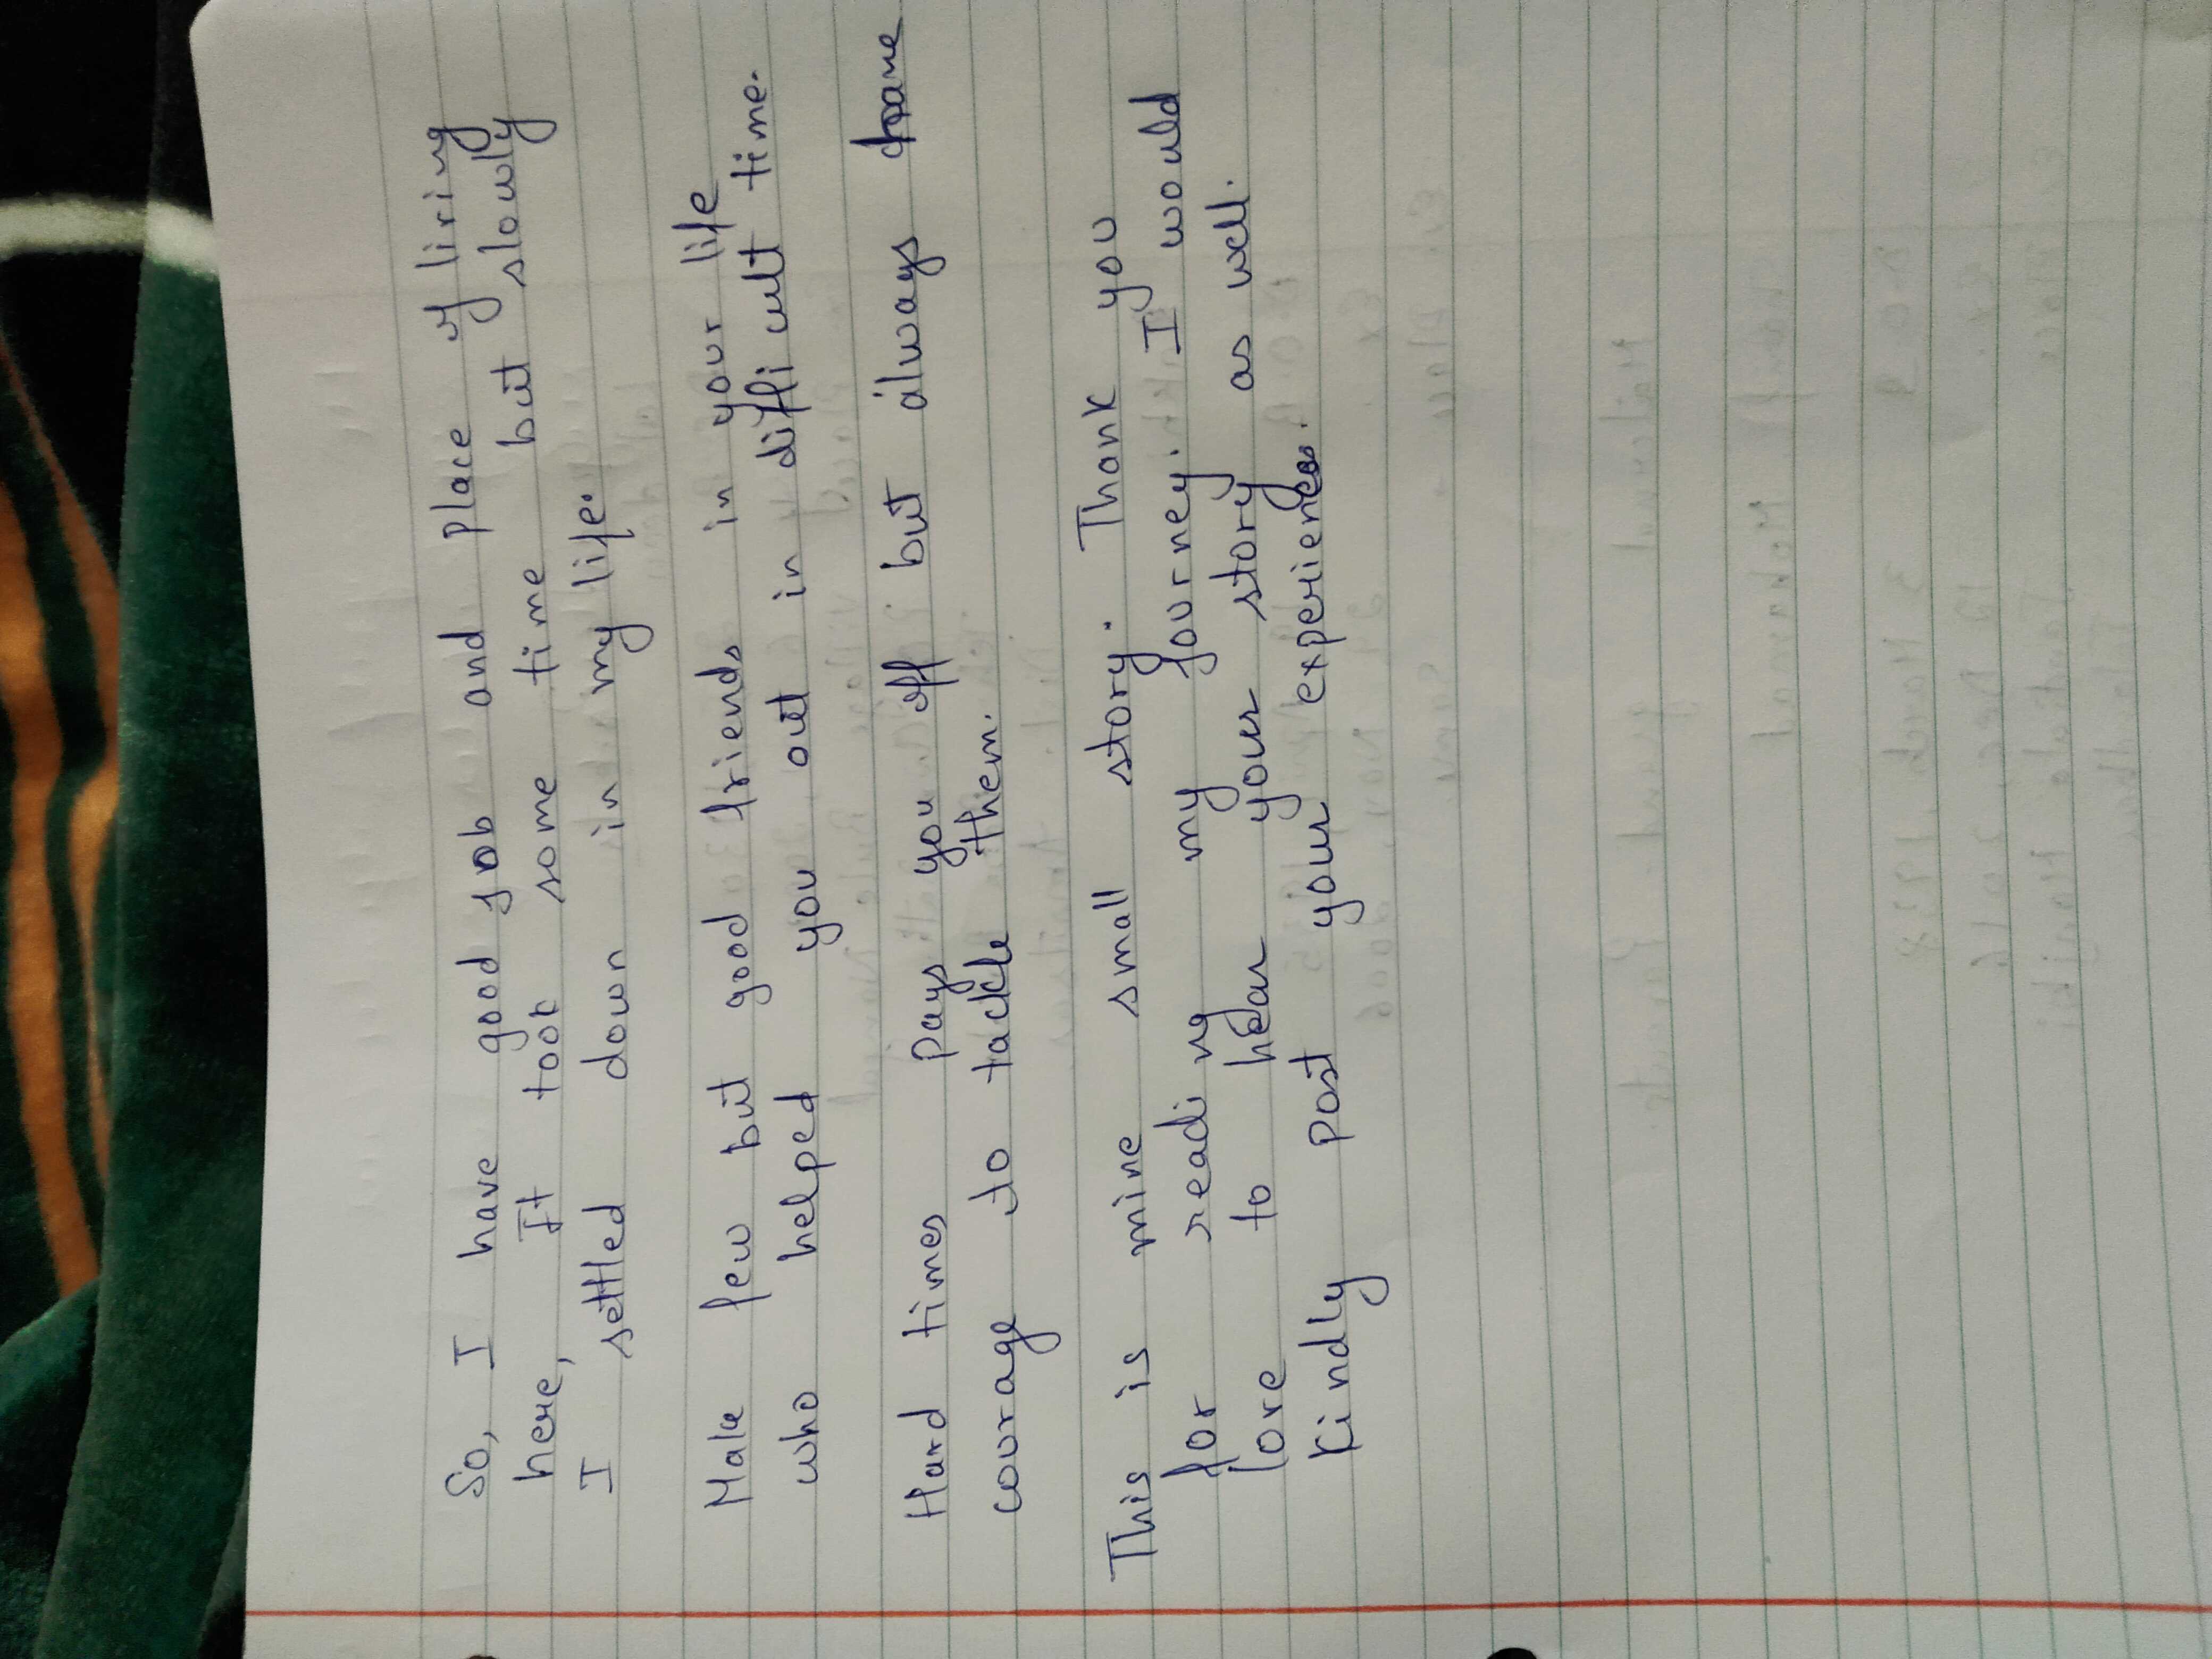 So, I have good job and place of living
here, It took some time but slowly
I settled down in my life.
Make few but good friends in your life
who helped you out in difficult time.
Hard times pays you off but always have
courage to tackle them.
This is mine small story. Thank you
for reading my journey. I would
love to hear your story as well.
Kindly post your experiences.